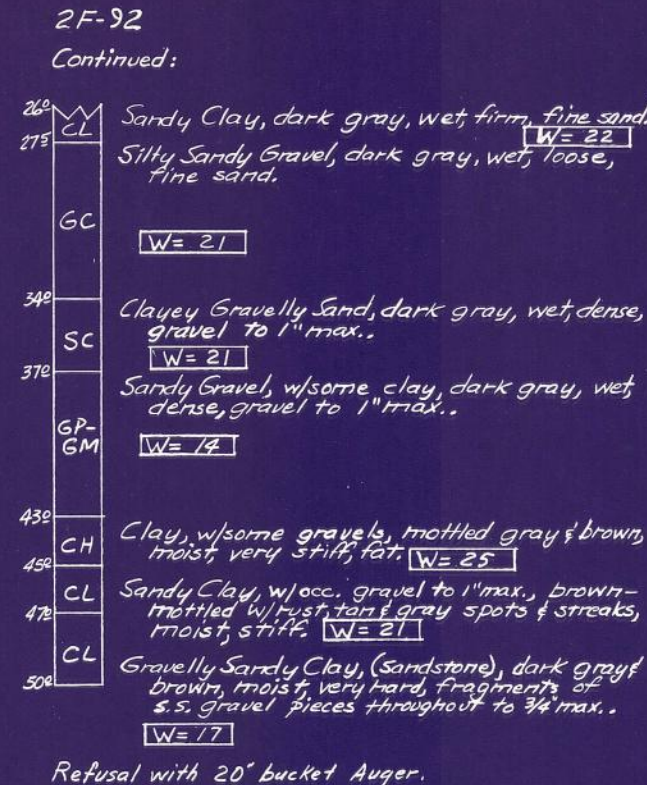 2F-92
Continued:
26⁰
CL
Sandy Clay, dark gray, wet, firm, fine sand.
W= 22
27⁵
Silty Sandy Gravel, dark gray, wet, loose,
fine sand.
GC
W= 21
34⁰
Clayey Gravelly Sand, dark gray, wet, dense,
gravel to 1" max..
SC
W= 21
37⁰
Sandy Gravel, w/some clay, dark gray, wet,
dense, gravel to 1" max..
GP-
GM
W= 14
43⁰
Clay, w/some gravels, mottled gray & brown,
CH
moist, very stiff, fat. W= 25
45⁰
Sandy Clay, w/occ. gravel to 1" max., brown-
CL
mottled w/rust, tan & gray spots & streaks,
47⁰
moist, stiff. W= 21
CL
Gravelly Sandy Clay, (Sandstone), dark gray &
brown, moist, very hard, fragments of
50⁰
s.s. gravel pieces throughout to 3/4" max..
W= 17
Refusal with 20" bucket Auger.